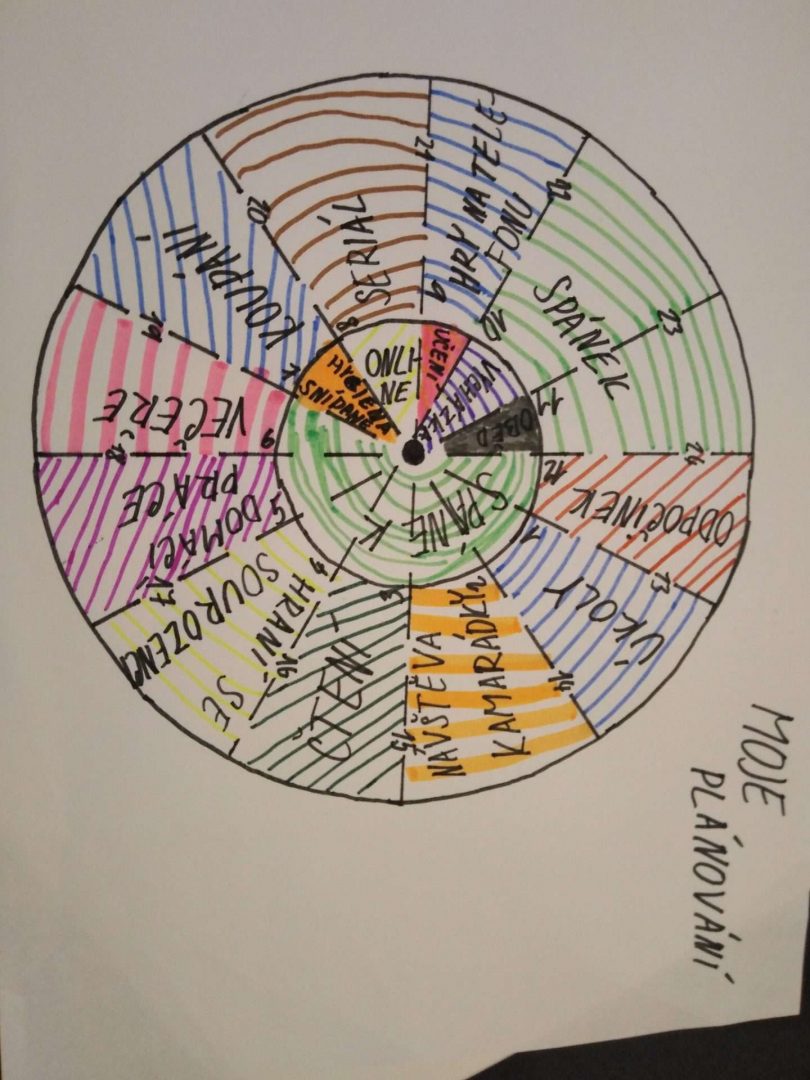 MOJE
PLÁNOVÁNÍ
24
ODPOČINEK
13
ÚKOLY
14
NÁVŠTĚVA
KAMARÁDKY
15
ČTENÍ
16
HRANÍ SE
SOUROZENCI
17
DOMÁCÍ
PRÁCE
18
VEČEŘE
19
KOUPÁNÍ
20
SERIÁL
21
HRY NA TELE-
FONU
22
SPÁNEK
23
12
1
2
3
4
5
6
7
8
9
10
11
SPÁNEK
HYGIENA
SNÍDANĚ
ONLI
NE
UČENÍ
OBĚD